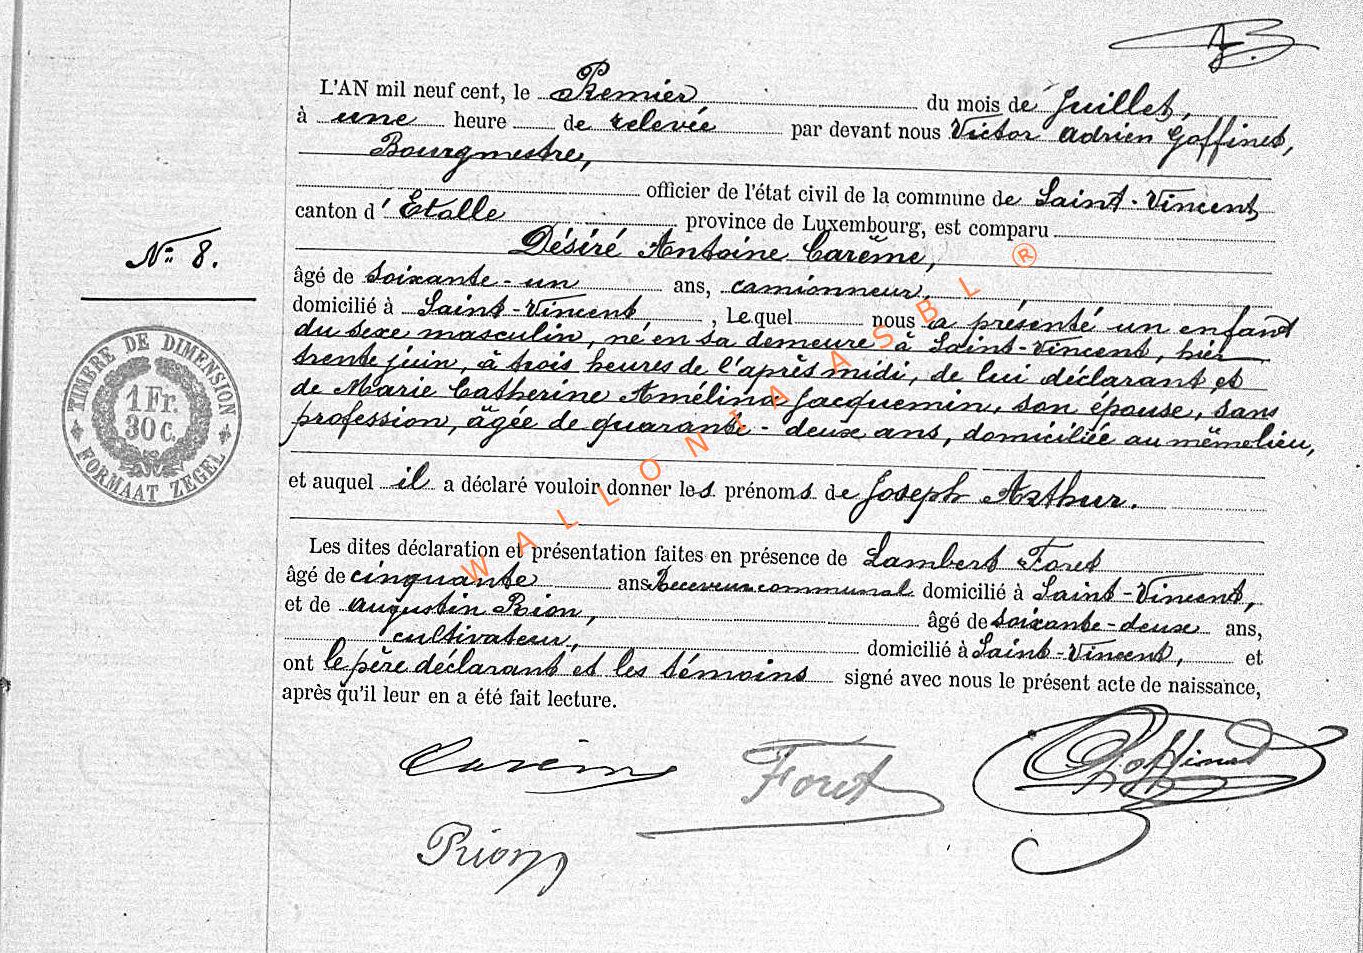 L'AN mil neuf cent, le Premier du mois de Juillet,
à une heure de relevée par devant nous Victor Adrien Goffinet,
Bourgmestre,
officier de l'état civil de la commune de Saint-Vincent
canton d'Etalle province de Luxembourg, est comparu
Désiré Antoine Carême,
âgé de soixante-un ans, camionneur,
domicilié à Saint-Vincent, Lequel nous a présenté un enfant
du sexe masculin, né en sa demeure à Saint-Vincent, hier
trente juin, à trois heures de l'après midi, de lui déclarant et
de Marie Catherine Amélina Jacquemin, son épouse, sans
profession, âgée de quarante-deux ans, domiciliée au même lieu,
et auquel il a déclaré vouloir donner les prénoms de Joseph Arthur.
Les dites déclaration et présentation faites en présence de Lambert Foret
âgé de cinquante ans Receveur communal domicilié à Saint-Vincent,
et de Augustin Rion, âgé de soixante-deux ans,
cultivateur, domicilié à Saint-Vincent, et
ont le père déclarant et les témoins signé avec nous le présent acte de naissance,
après qu'il leur en a été fait lecture.
N° 8.
TIMBRE DE DIMENSION
1 Fr.
30 C.
FORMAAT ZEGEL
WALLONIA ASBL ®
Carême
Foret
Goffinet
Rion